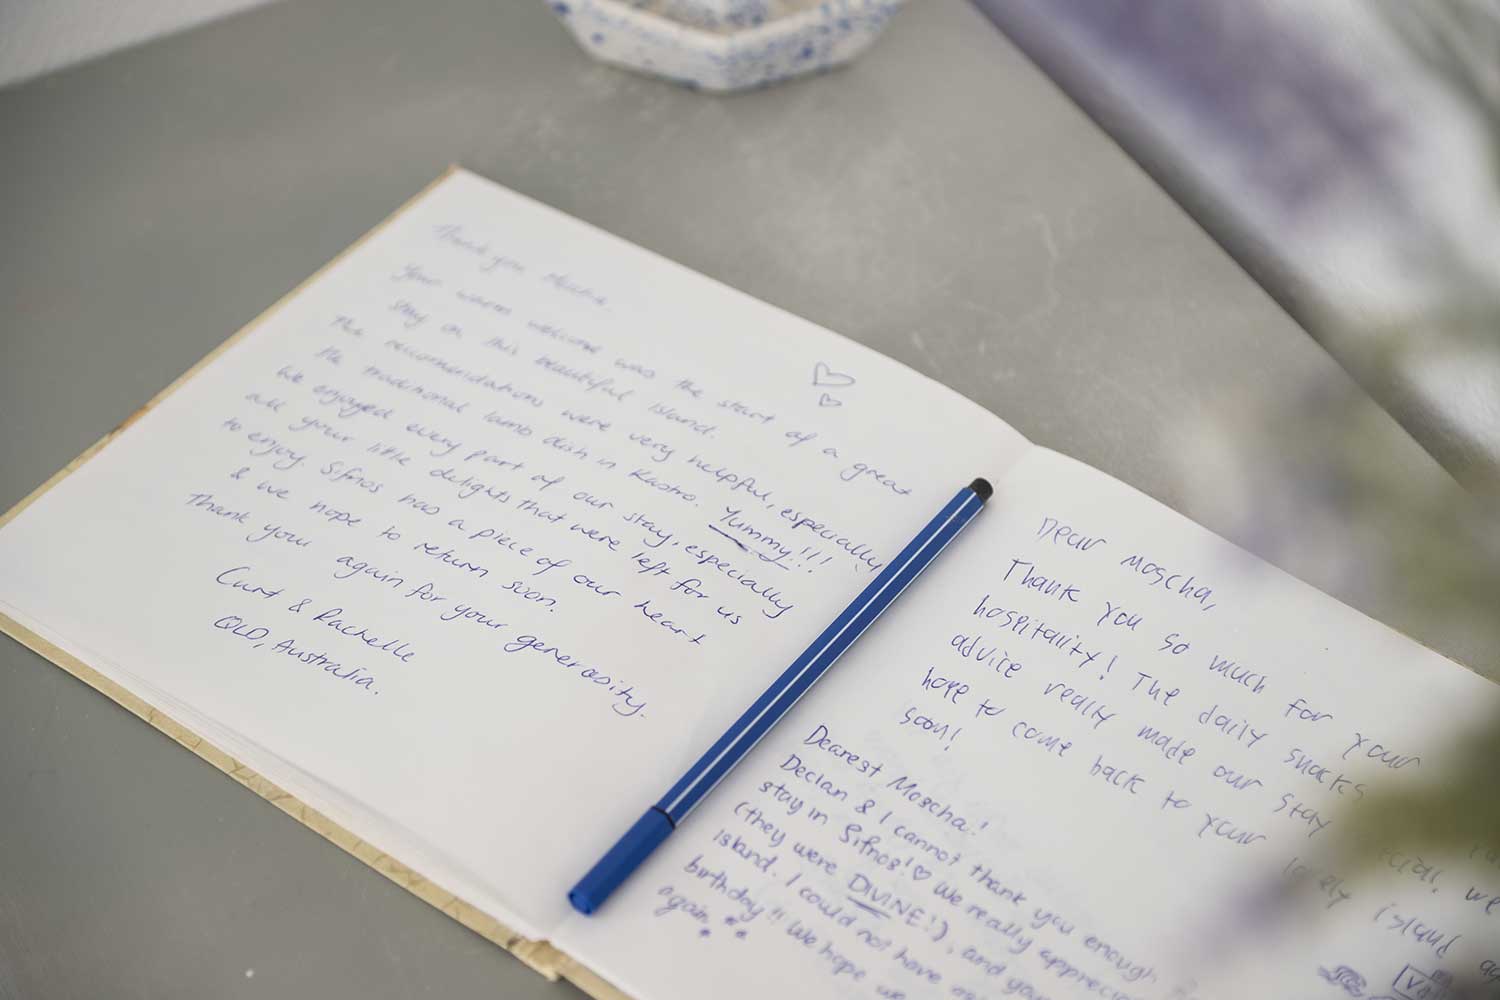 Thank you Moscha.
Your warm welcome was the start of a great
stay on this beautiful island.
The recomendations were very helpful, especially
the traditional lamb dish in Kastro. Yummy!!!
We enjoyed every part of our stay, especially
all your little delights that were left for us
to enjoy. Sifnos has a piece of our heart
& we hope to return soon.
Thank your again for your generosity.
Curt & Rachelle
QLD, Australia.
Dear Moscha,
Thank you so much for your
hospitality! The daily snacks
advice really made our stay we
hope to come back to your lovely island
soon!
Dearest Moscha!
Declan & I cannot thank you enough
stay in Sifnos! ♡ We really apprecia
(they were DIVINE!), and your
island. I could not have
birthday!! We hope we
again